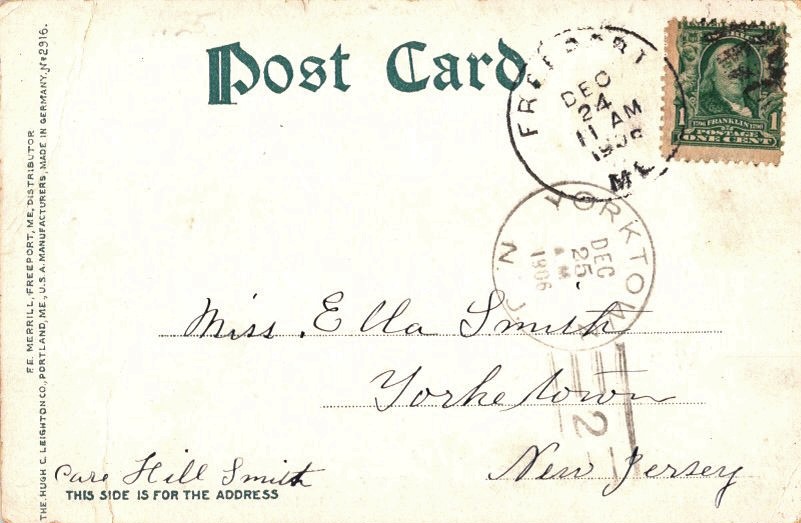 Post Card
FREEPORT
DEC
24
11 AM
1906
ME
1706 FRANKLIN 1790
POSTAGE
ONE CENT
1 1
YORKTOWN
N. J.
DEC
25
A M
1906
2
Miss. Ella Smith
Yorketown
New Jersey
Care Hill Smith
THIS SIDE IS FOR THE ADDRESS
F.E. MERRILL, FREEPORT, ME, DISTRIBUTOR
THE HUGH C. LEIGHTON CO., PORTLAND, ME., U.S.A. MANUFACTURERS, MADE IN GERMANY, No 2916.